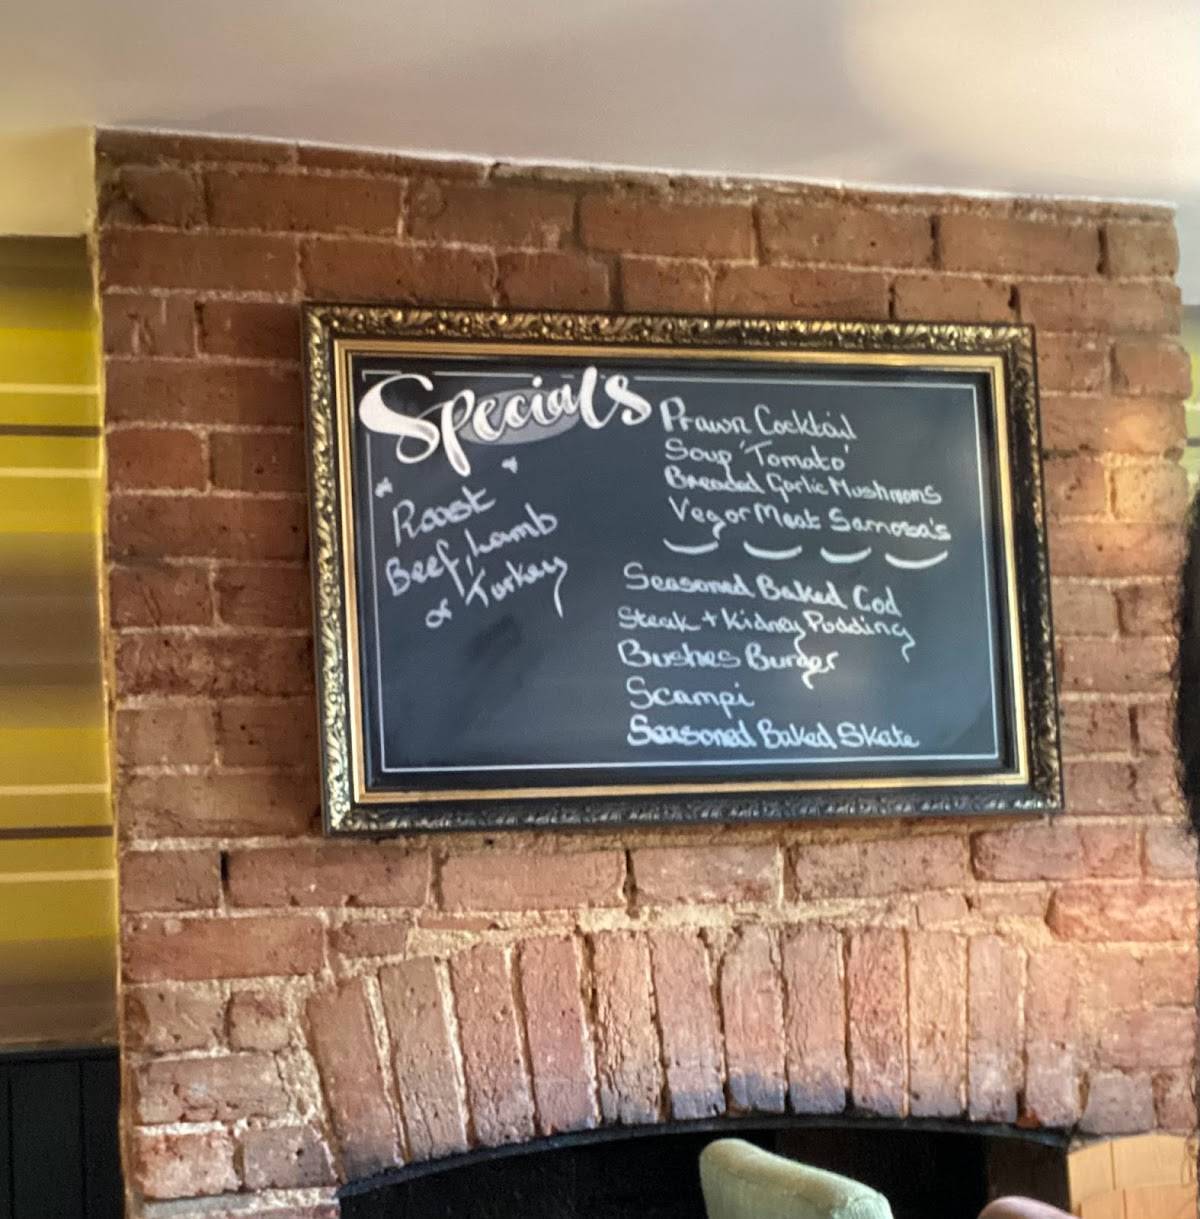 Specials
Roast
Beef, Lamb
or Turkey
Prawn Cocktail
Soup 'Tomato'
Breaded Garlic Mushrooms
Veg or Meat Samosa's
Seasoned Baked Cod
Steak + Kidney Pudding
Bushes Burger
Scampi
Seasoned Baked Skate